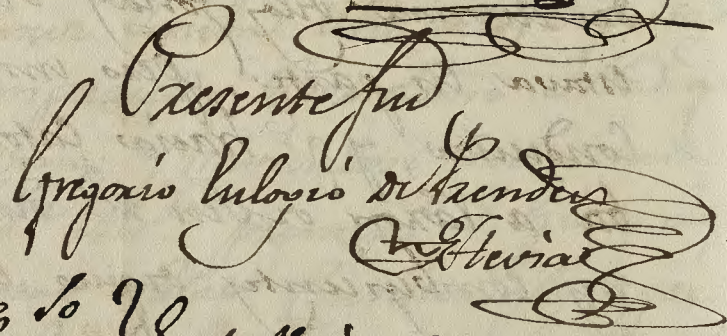 Presente fui
Gregorio Eulogio de Prendes
Hevia